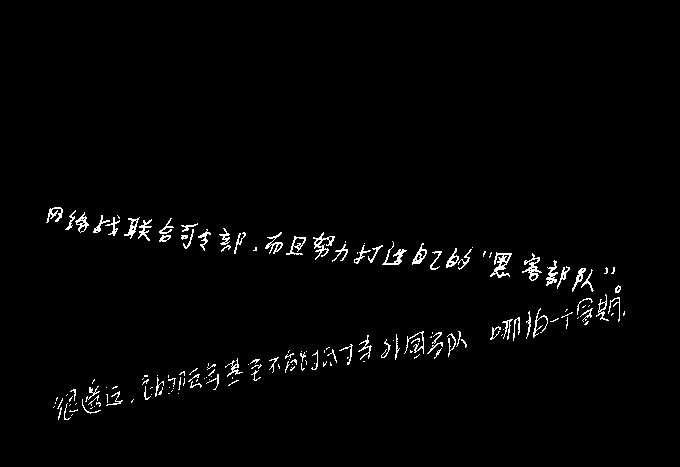 网络战联合司令部,而且努力打造自己的“黑客部队”。
很遗憾,它的陆军甚至不能抵对等外国部队 哪怕一个星期.